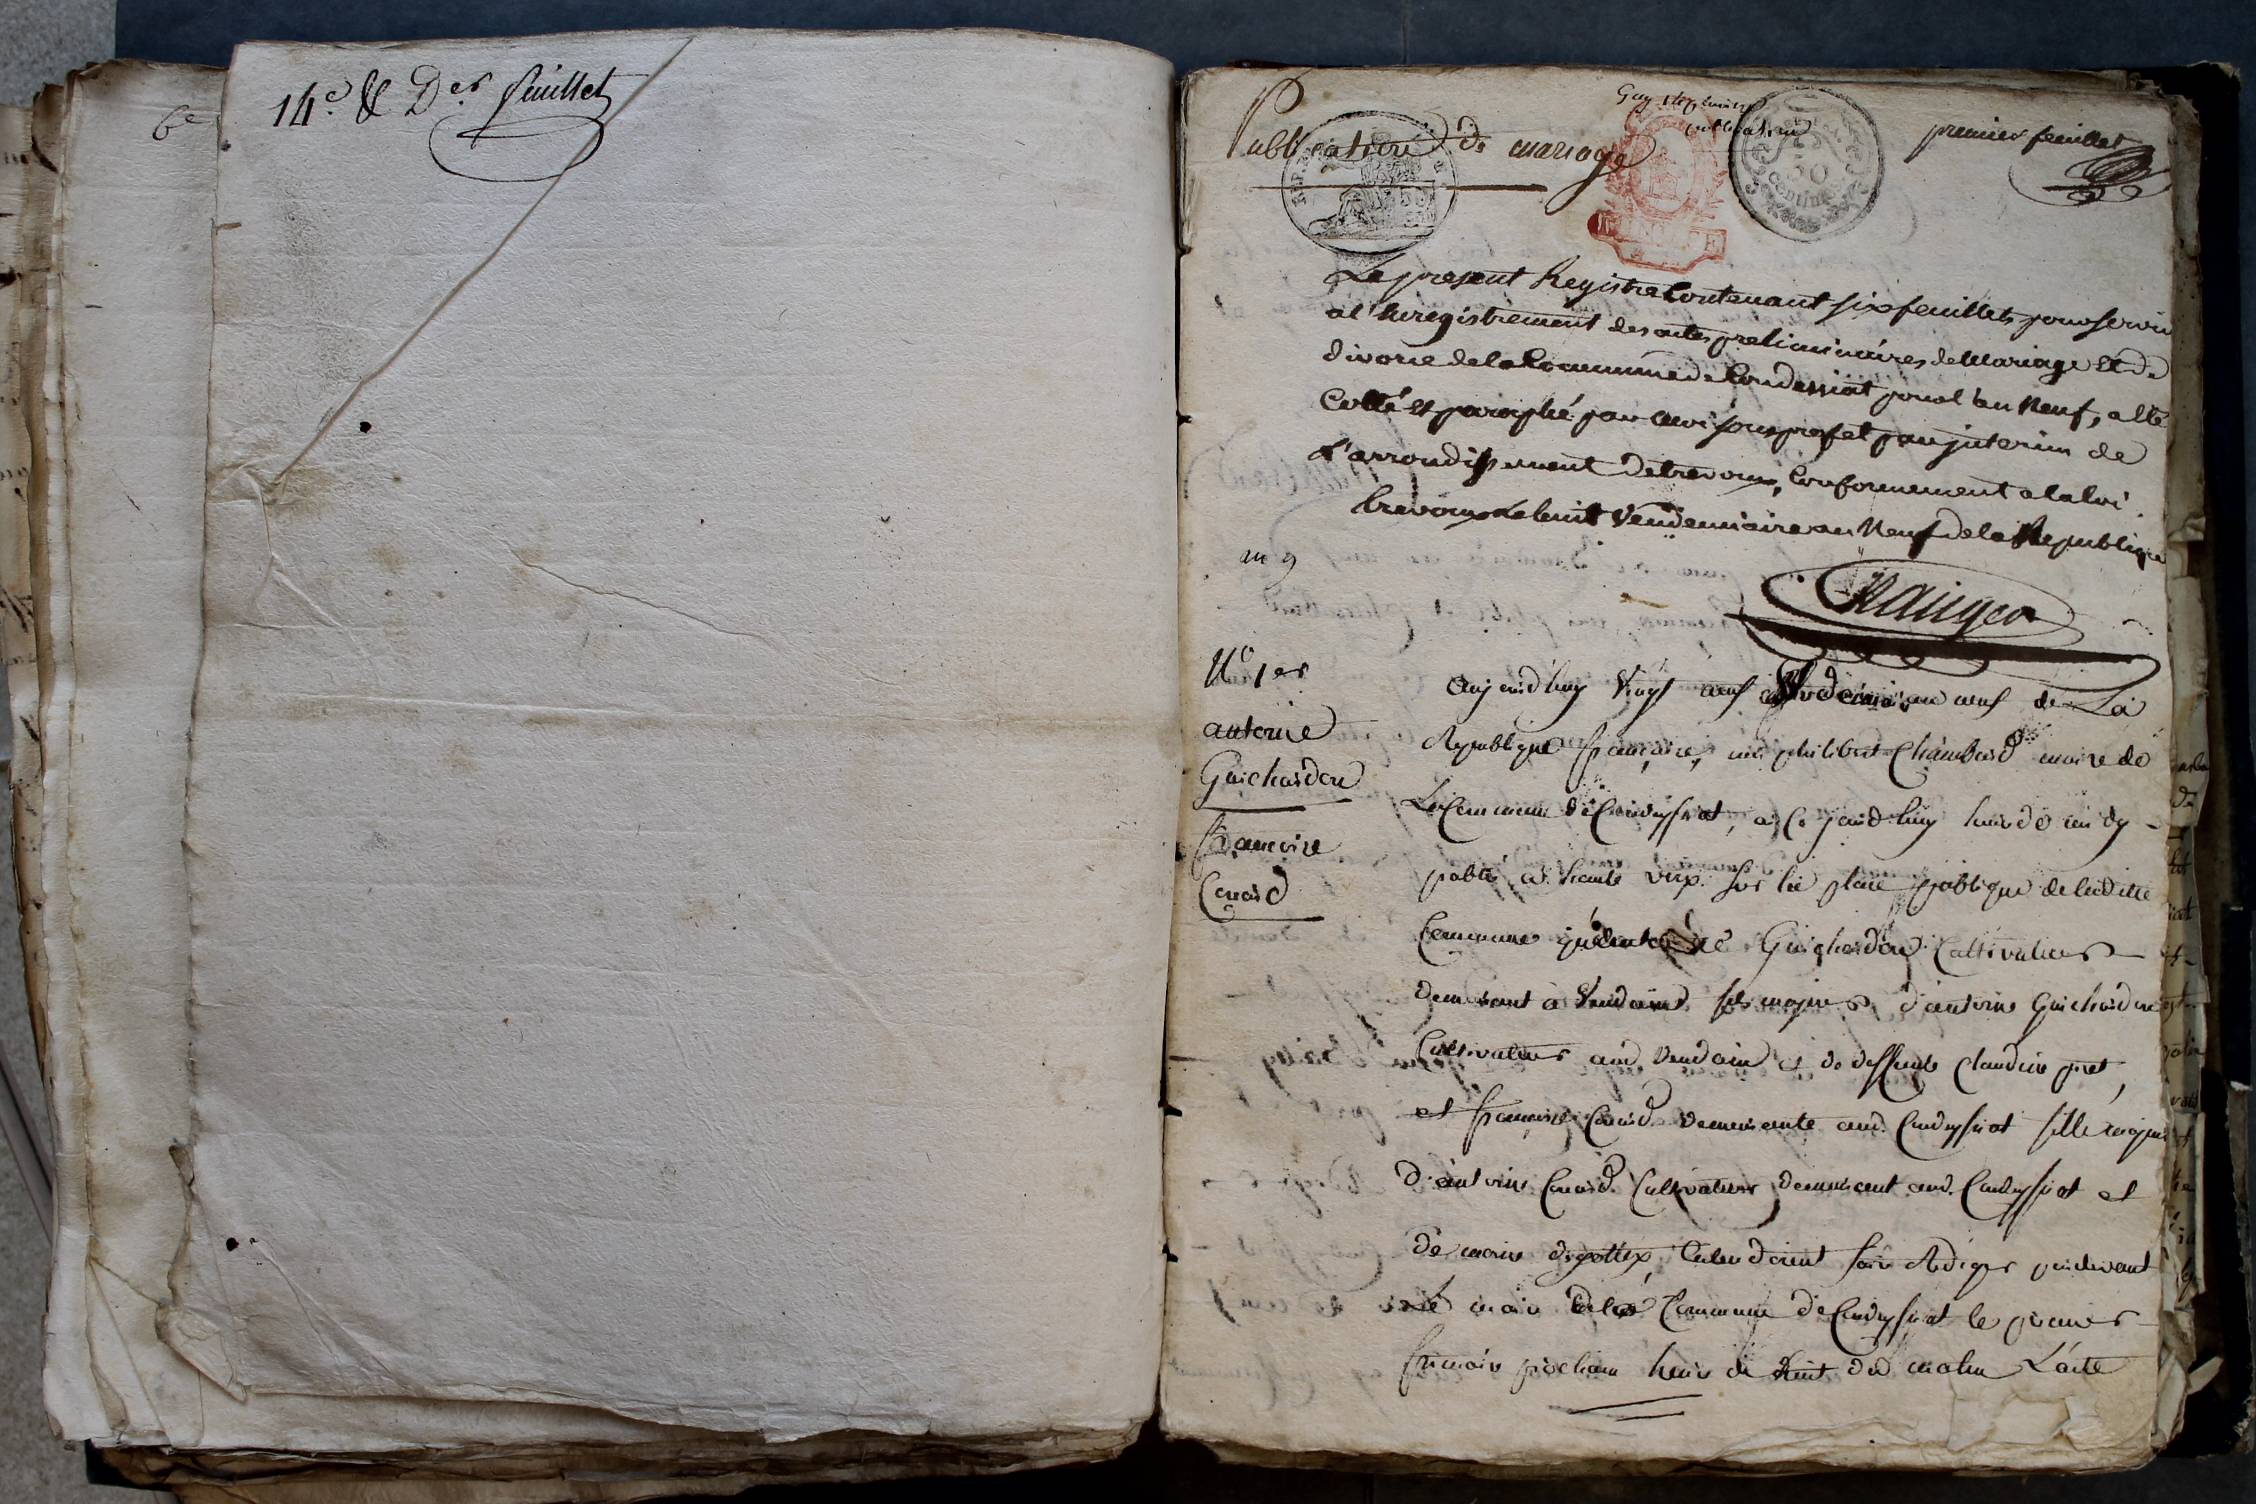 6e
14e & Der feuillet
premier feuillet
Publication de mariage
50
Centimes
Le present Registre Contenant six feuillets pour servir
a l'Enregistrement des actes preliminaires de Mariage Et de
divorce de la Commune de Condessiat pour l'an Neuf, a été
Cotté Et paraphé par moi sous prefet par interim de
L'arrondissement de trevoux, Conformement a la loi.
trevoux Le huit Vendemiaire an Neuf de la Republique
an 9
No 1er
antoine
Guichardon
francoise
Cruaid
aujourd'huy Vingt neuf an neuf de La
Republique francaise, philibert Chambard maire de
La Commune de Condessiat, a Ce jourd'huy heure de midy
publié a haute voix sur la place publique de ladite
Commune Guichardon Cultivateur
demeurant à Vandains fils majeur d'antoine Guichardon
Cultivateur aud. Vandains et de deffunte Claudine
et francoise demeurante aud. Condessiat fille majeure
d'antoine Cultivateur demeurant aud. Condessiat et
de marie Entendoient faire Rediger pardevant
Le maire de la Commune de Condessiat le premier
frimaire prochain heure de huit du matin L'acte